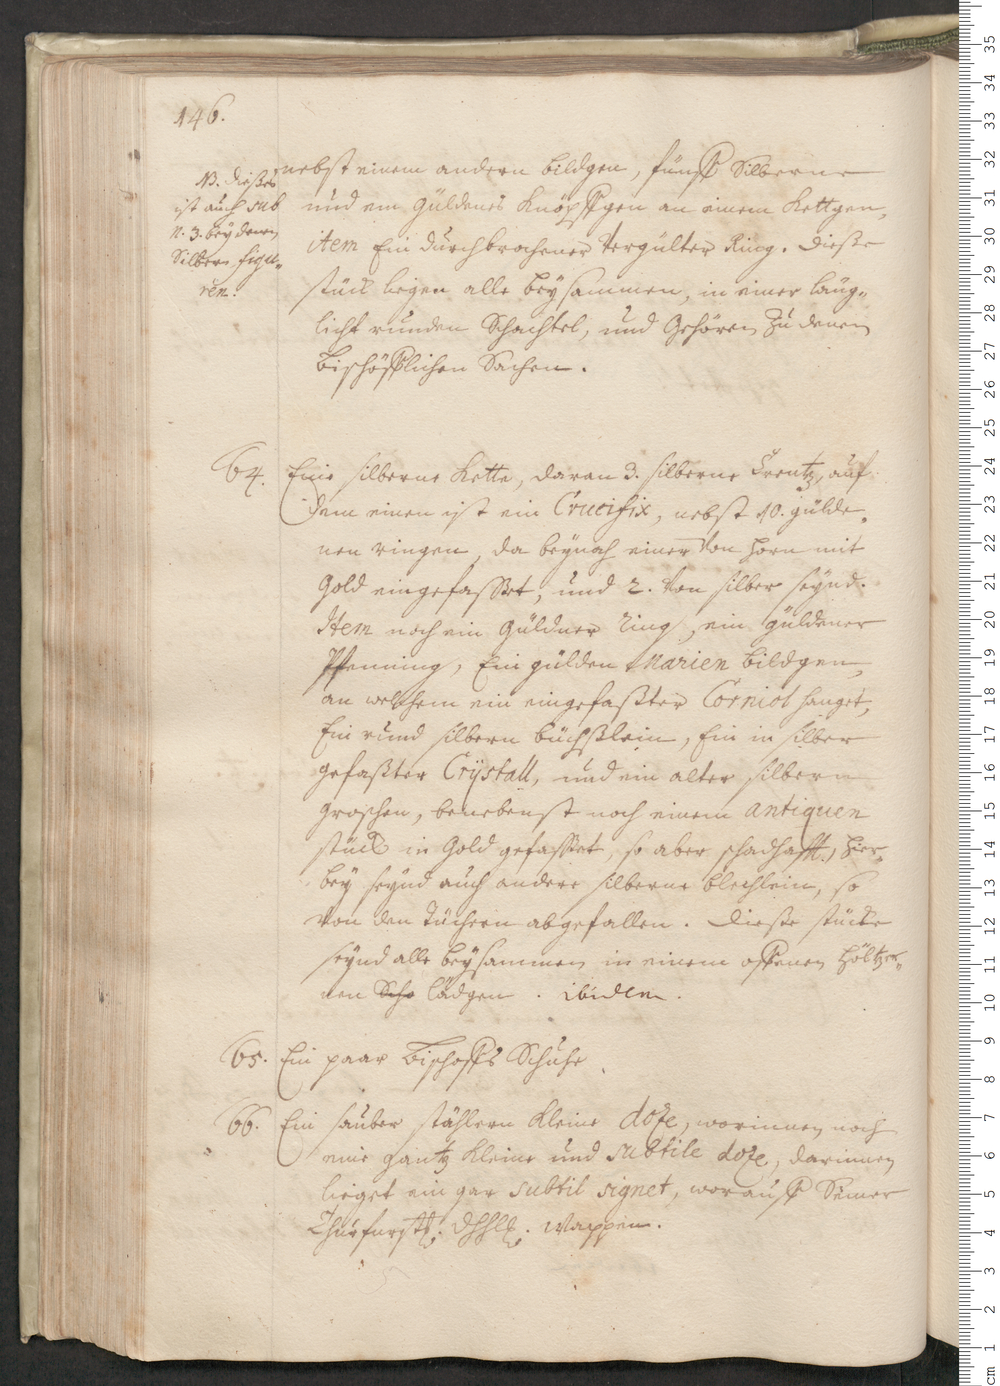 146.
NB. dießes
ist auch sub
N. 3. bey denen
Silbern figu-
ren.
nebst einem andern bildgen, fünff Silberne
und ein Güldenes Knöpffgen an einem Kettgen,
item Ein durchbrochener Vergülter Ring. Dieße
stück liegen alle beysammen, in einer läng-
licht runden Schachtel, und Gehören zu denen
Bischöfflichen Sachen.
64. Eine silberne Kette, daran 3. silberne Creutz, auf
dem einen ist ein Crucifix, nebst 10. gülde-
nen ringen, da beynah einer von Horn mit
Gold eingefasset, und 2. von silber seynd.
Item noch ein Güldner Ring, ein güldener
Pfenning, Ein gülden Marien bildgen,
an welchem ein eingefaßter Corniol hanget,
Ein rund silbern büchßlein, Ein in silber
gefaßter Crÿstall, und ein alter silbern
groschen, benebenst noch einem antiquen
stück in Gold gefasset, so aber schadhafft, hier-
bey seynd auch andere silberne blechlein, so
von den Tüchern abgefallen. Dieße stücke
seynd alle beysammen in einem offenen höltzer-
nen Scha lädgen. ibidem.
65. Ein paar Bischoffs Schuhe
66. Ein sauber stählern kleine doße, worinnen noch
eine gantz kleine und subtile doße, darinnen
lieget ein gar subtil signet, worauff Seiner
Churfürstl. Dhhl. Wappen.
35
34
33
32
31
30
29
28
27
26
25
24
23
22
21
20
19
18
17
16
15
14
13
12
11
10
9
8
7
6
5
4
3
2
1
cm